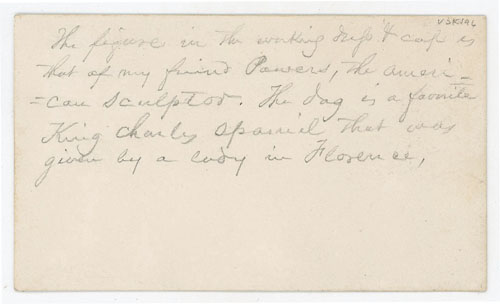 V3K196
The figure in the working dress & cap is
that of my friend Powers, the ameri-
=can sculptor. The dog is a favorite
King Charles Spaniel that was
given by a lady in Florence,